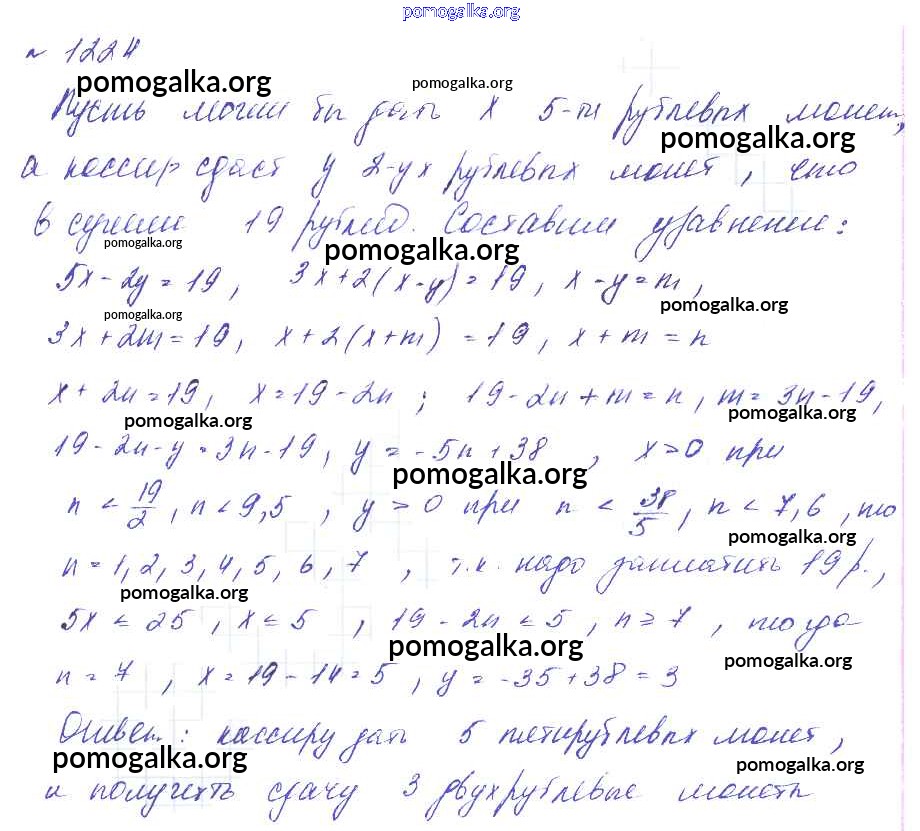 pomogalka.org
№ 1224
pomogalka.org pomogalka.org
Пусть могли бы дать x 5-ти рублевых монет,
pomogalka.org
а кассир сдаст y 2-ух рублевых монет, что
в сумме 19 рублей. Составим уравнение:
pomogalka.org pomogalka.org
5x - 2y = 19, 3x + 2(x - y) = 19, x - y = m,
pomogalka.org pomogalka.org
3x + 2m = 19, x + 2(x + m) = 19, x + m = n
x + 2n = 19, x = 19 - 2n ; 19 - 2n + m = n, m = 3n - 19,
pomogalka.org pomogalka.org
19 - 2n - y = 3n - 19, y = -5n + 38, x > 0 при
pomogalka.org
n < 19/2, n < 9,5, y > 0 при n < 38/5, n < 7,6, то
pomogalka.org
n = 1, 2, 3, 4, 5, 6, 7, т.к. надо заплатить 19 р.,
pomogalka.org
5x ≤ 25, x ≤ 5, 19 - 2n ≤ 5, n ≥ 7, тогда
pomogalka.org pomogalka.org
n = 7, x = 19 - 14 = 5, y = -35 + 38 = 3
Ответ: кассиру дать 5 пятирублевых монет,
pomogalka.org pomogalka.org
и получить сдачу 3 двухрублевые монеты